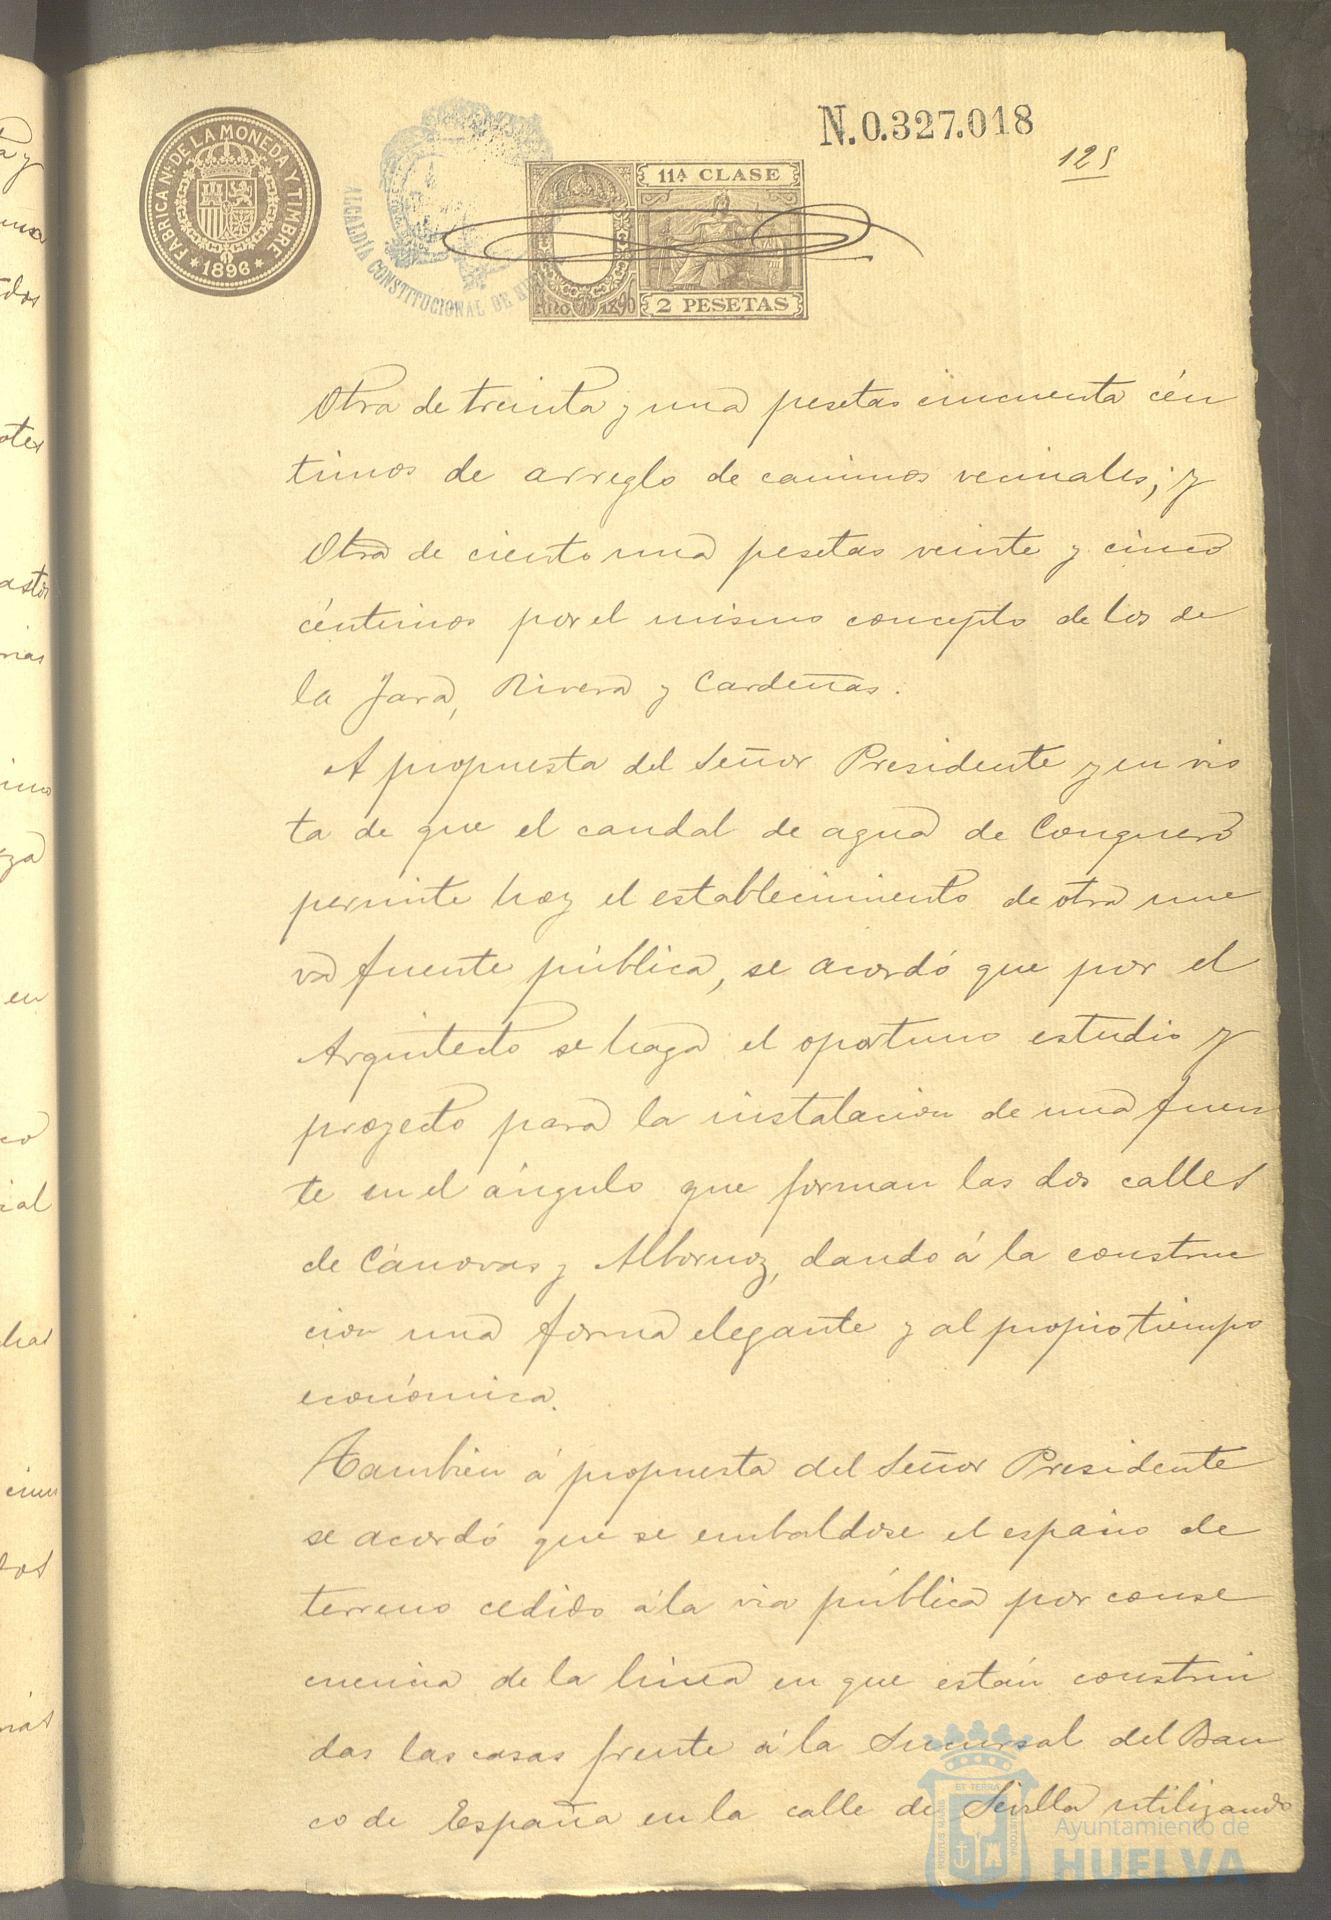 N. 0.327.018
125
FABRICA Nˡ. DE LA MONEDA Y TIMBRE
1896
ALCALDÍA CONSTITUCIONAL DE
11ª CLASE
2 PESETAS
Otra de treinta y una pesetas cincuenta cén
timos de arreglo de caminos vecinales; y
Otra de ciento una pesetas veinte y cinco
céntimos por el mismo concepto de los de
la Jara, Rivera y Cardeñas.
A propuesta del Señor Presidente y en vis
ta de que el caudal de agua de Conquero
permite hoy el establecimiento de otra nue
va fuente pública, se acordó que por el
Arquitecto se haga el oportuno estudio y
proyecto para la instalacion de una fuen
te en el ángulo que forman las dos calles
de Cánovas y Albornoz, dando á la construc
cion una forma elegante y al propio tiempo
económica.
Tambien á propuesta del Señor Presidente
se acordó que se embaldose el espacio de
terreno cedido á la via pública por conse
cuencia de la linea en que están construi
das las casas frente á la Sucursal del Ban
co de España en la calle de Sevilla utilizando
Ayuntamiento de
HUELVA